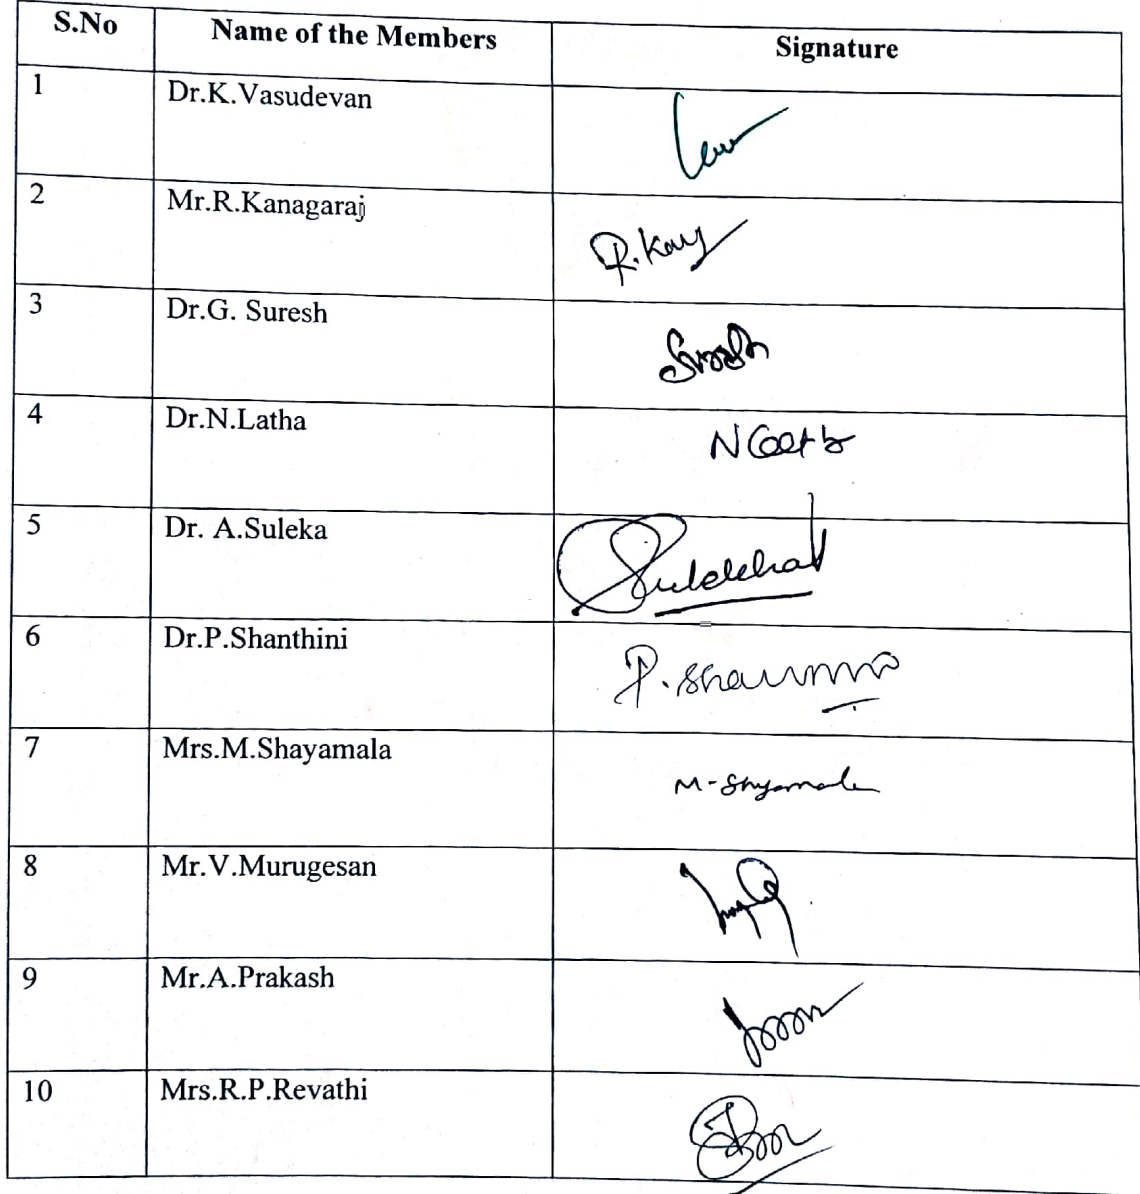 S.No Name of the Members Signature
1 Dr.K.Vasudevan
2 Mr.R.Kanagaraj R.Kanj
3 Dr.G. Suresh Suresh
4 Dr.N.Latha
5 Dr. A.Suleka Sulekha
6 Dr.P.Shanthini P.Shan
7 Mrs.M.Shayamala M-Shyamala
8 Mr.V.Murugesan
9 Mr.A.Prakash
10 Mrs.R.P.Revathi